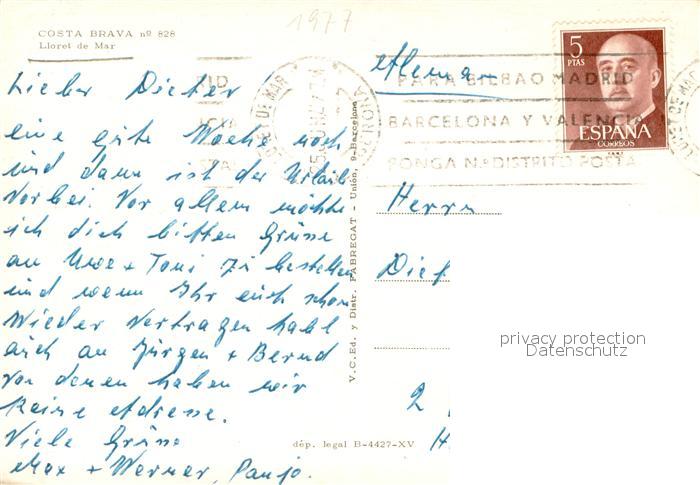 1977
COSTA BRAVA nº 828
Lloret de Mar
Lieber Dieter!
eine gute Woche noch
und dann ist der Urlaub
vorbei. Vor allem möchte
ich dich bitten Grüsse
an Uwe + Toni zu bestellen
und wenn Ihr euch schon
wieder vertragen habt
auch an Jürgen + Bernd
von denen haben wir
keine Adresse.
Viele Grüsse
Max + Werner,
V. C. Ed. y Distr. FABREGAT - Unión, 9-Barcelona
dép. legal B-4427-XV
5
PTAS
ESPAÑA
CORREOS
PARA BILBAO MADRID
BARCELONA Y VALENCIA
PONGA Nº DISTRITO POSTA
LLORET DE MAR
GERONA
Herrn
Diet
2
H
privacy protection
Datenschutz